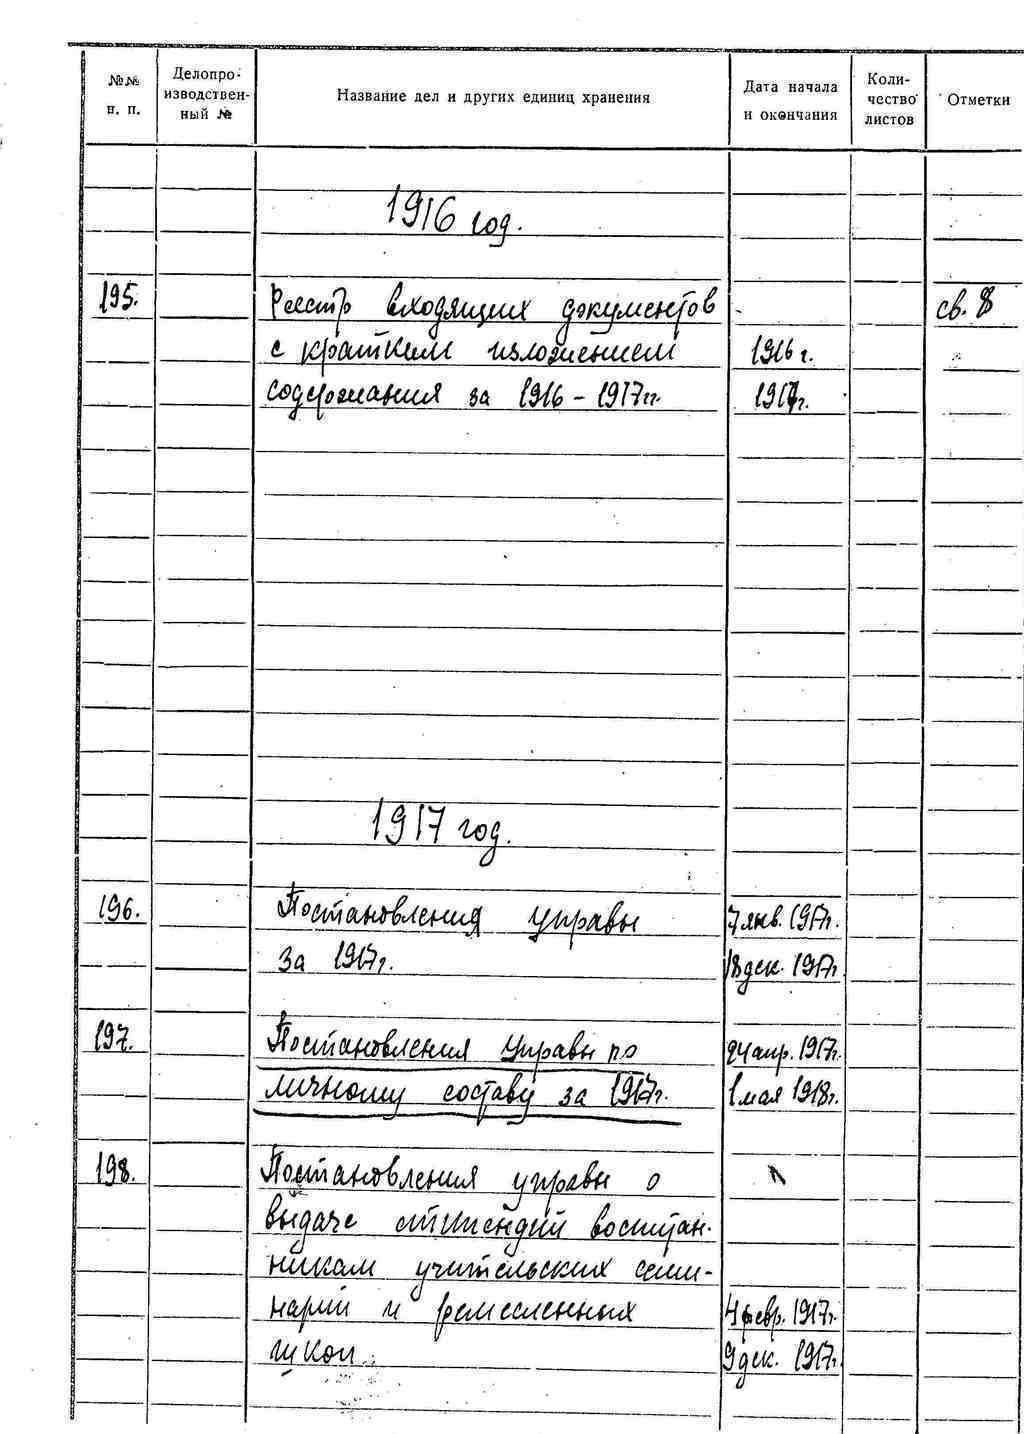 №№ н. п.
Делопроизводственный №
Название дел и других единиц хранения
Дата начала и окончания
Количество листов
Отметки
1916 год.
195. Реестр входящих документов св. 8
с кратким изложением 1916 г.
содержания за 1916 - 1917 гг. 1917 г.
1917 год.
196. Постановления управы 7 янв. 1917 г.
за 1917 г. 18 дек. 1917 г.
197. Постановления управы по 24 апр. 1917 г.
личному составу за 1917 г. 1 мая 1918 г.
198. Постановления управы о
выдаче стипендий воспитан-
никам учительских семи-
нарий и ремесленных 4 февр. 1917 г.
школ. 9 дек. 1917 г.